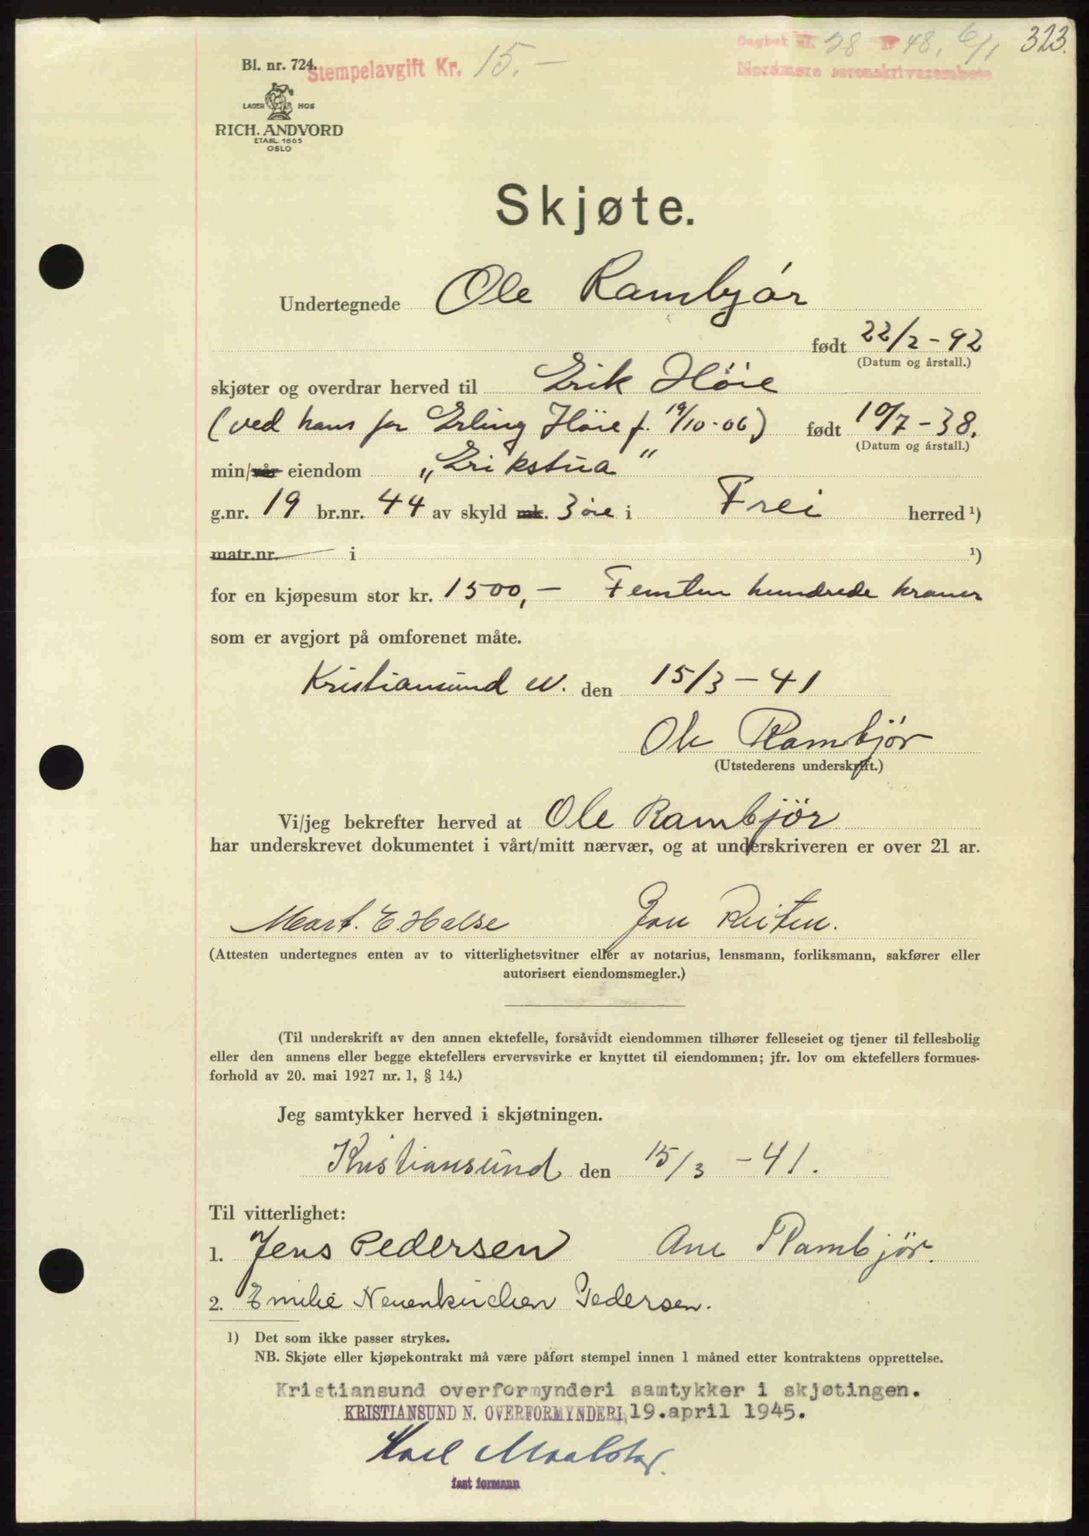 323.
Dagbok nr. 28 19 48, 6/1
Nordmøre sorenskriverembete
Bl. nr. 724.
Stempelavgift Kr. 15.-
LAGER HOS
RICH. ANDVORD
ETABL. 1865
OSLO
Skjøte.
Undertegnede Ole Rambjör
født 22/2 - 92
(Datum og årstall.)
skjøter og overdrar herved til Erik Höie
(ved hans far Erling Höie f. 19/10-06) født 10/7 - 38.
(Datum og årstall.)
min/vår eiendom „Erikstua"
g.nr. 19 br.nr. 44 av skyld mk. 3 øre i Frei herred ¹)
matr.nr. i ¹)
for en kjøpesum stor kr. 1500,- Femten hundrede kroner
som er avgjort på omforenet måte.
Kristiansund N. den 15/3 - 41
Ole Rambjør
(Utstederens underskrift.)
Vi/jeg bekrefter herved at Ole Rambjör
har underskrevet dokumentet i vårt/mitt nærvær, og at underskriveren er over 21 ar.
Mart. E. Halse Jon Reiten.
(Attesten undertegnes enten av to vitterlighetsvitner eller av notarius, lensmann, forliksmann, sakfører eller
autorisert eiendomsmegler.)
(Til underskrift av den annen ektefelle, forsåvidt eiendommen tilhører felleseiet og tjener til fellesbolig
eller den annens eller begge ektefellers ervervsvirke er knyttet til eiendommen; jfr. lov om ektefellers formues-
forhold av 20. mai 1927 nr. 1, § 14.)
Jeg samtykker herved i skjøtningen.
Kristiansund den 15/3 - 41.
Til vitterlighet:
1. Jens Pedersen Ane Rambjør.
2. Emilie Neuenkirchen Pedersen.
1) Det som ikke passer strykes.
NB. Skjøte eller kjøpekontrakt må være påført stempel innen 1 måned etter kontraktens opprettelse.
Kristiansund overformynderi samtykker i skjøtingen.
KRISTIANSUND N. OVERFORMYNDERI, 19.april 1945.
fast formann